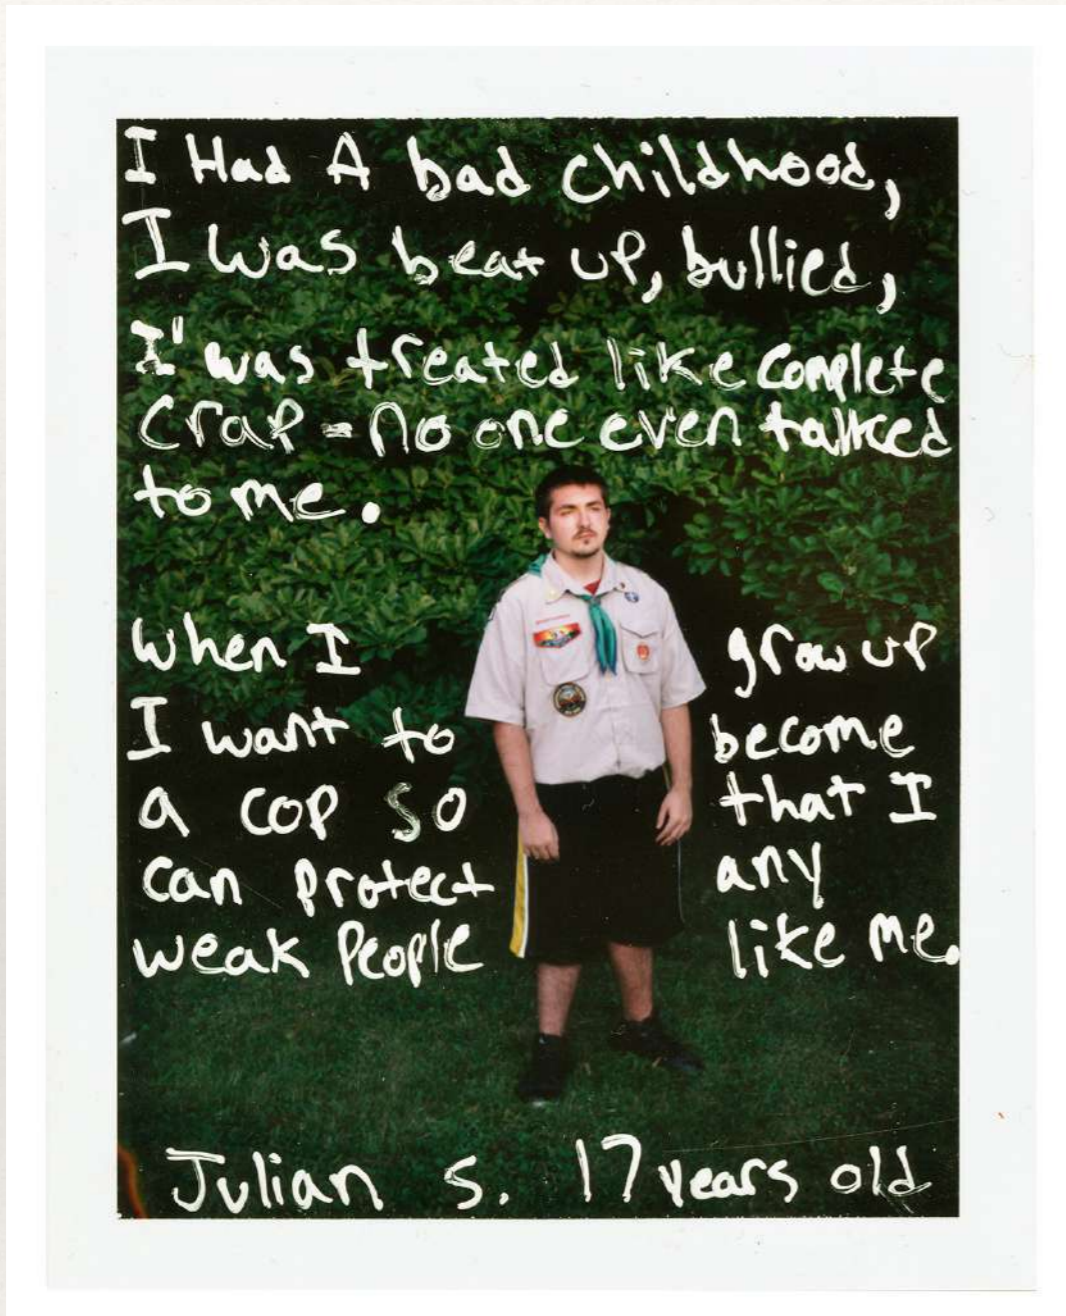 I Had A bad childhood,
I was beat up, bullied,
I' was treated like complete
Crap - no one even talked
to me.
when I grow up
I want to become
a cop so that I
can protect any
weak people like me.
Julian S. 17 years old